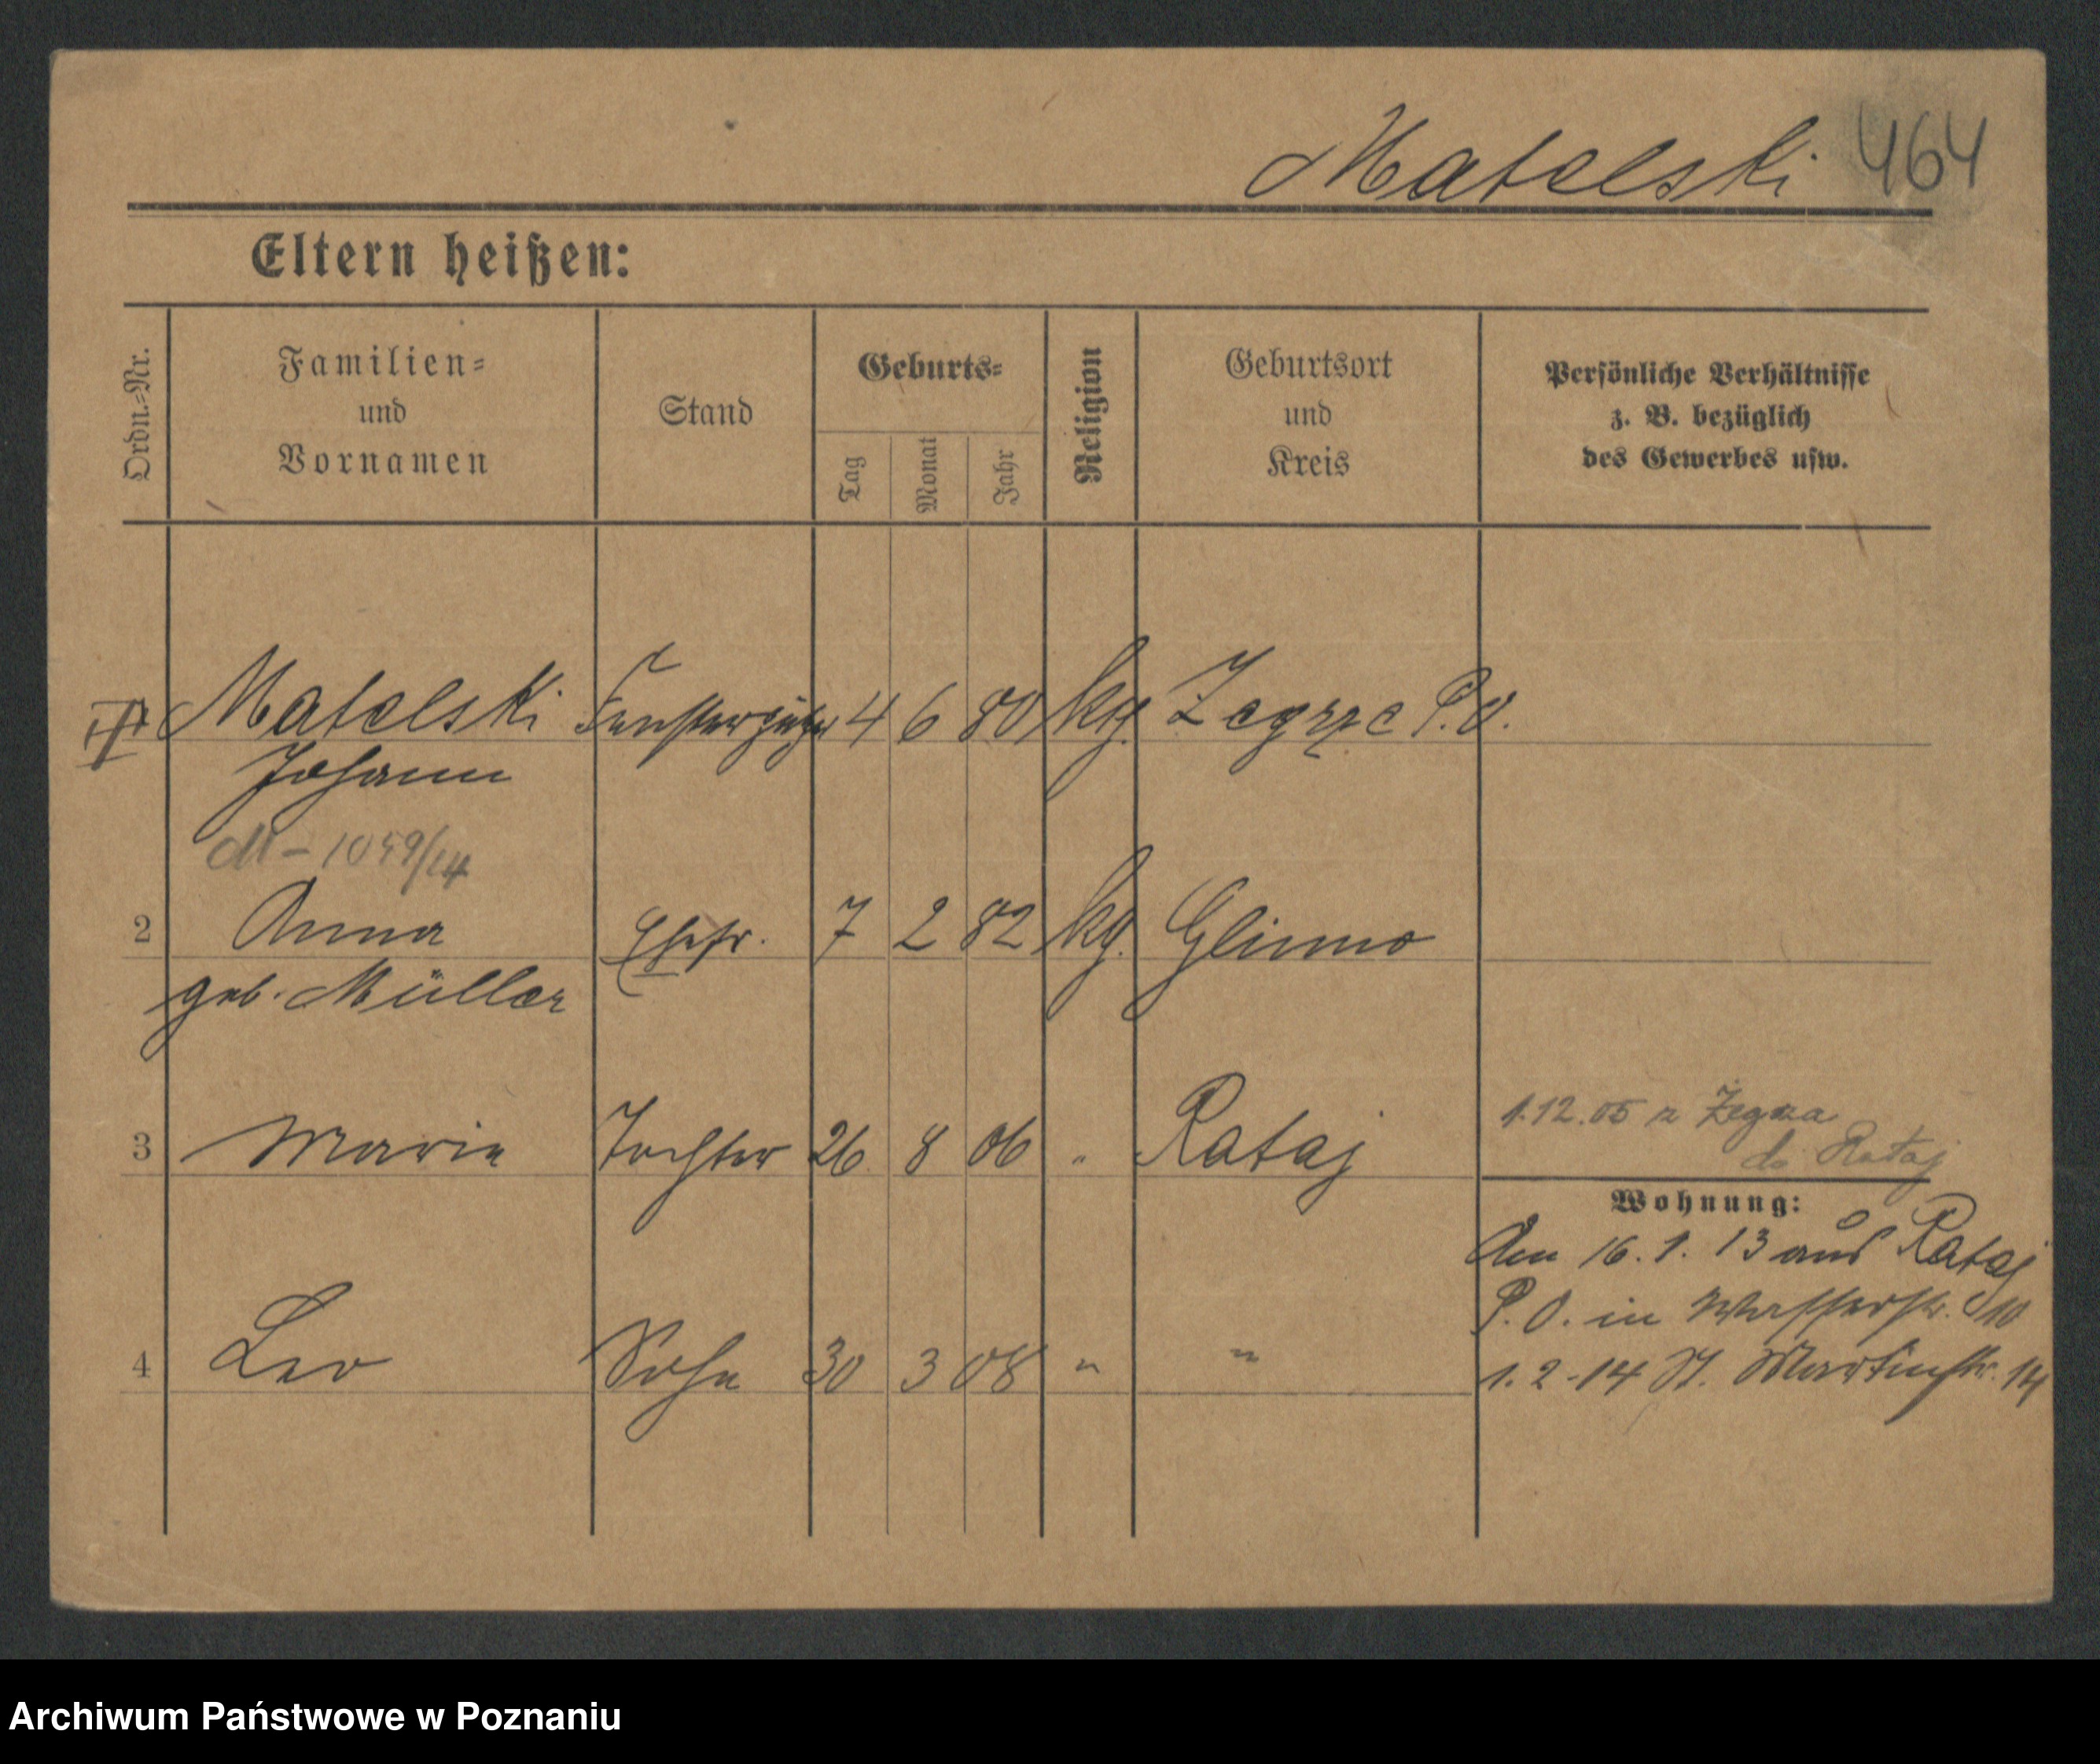 Matelski 464
Eltern heißen:
Ordn.=Nr.
Familien=
und
Vornamen
Stand
Geburts=
Tag
Monat
Jahr
Religion
Geburtsort
und
Kreis
Persönliche Verhältnisse
z. B. bezüglich
des Gewerbes usw.
Matelski 4 6 80 kg. Zegrze P.O.
Johann
M-1059/14
2 Anna Ehefr. 7 2 82 kg. Glinno
geb. Müller
3 Marie Tochter 26 8 06 " Rataj
1.12.05 z Żegrza
do Rataj
Wohnung:
Am 16.1.13 aus Rataj
P.O. in Wasserstr. 10
4 Leo Sohn 30 3 08 " "
1.2.14 St. Martinstr. 14
Archiwum Państwowe w Poznaniu